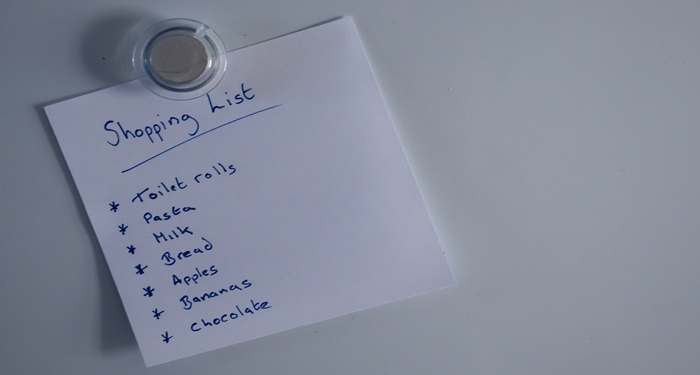 Shopping List
* Toilet rolls
* Pasta
* Milk
* Bread
* Apples
* Bananas
* Chocolate